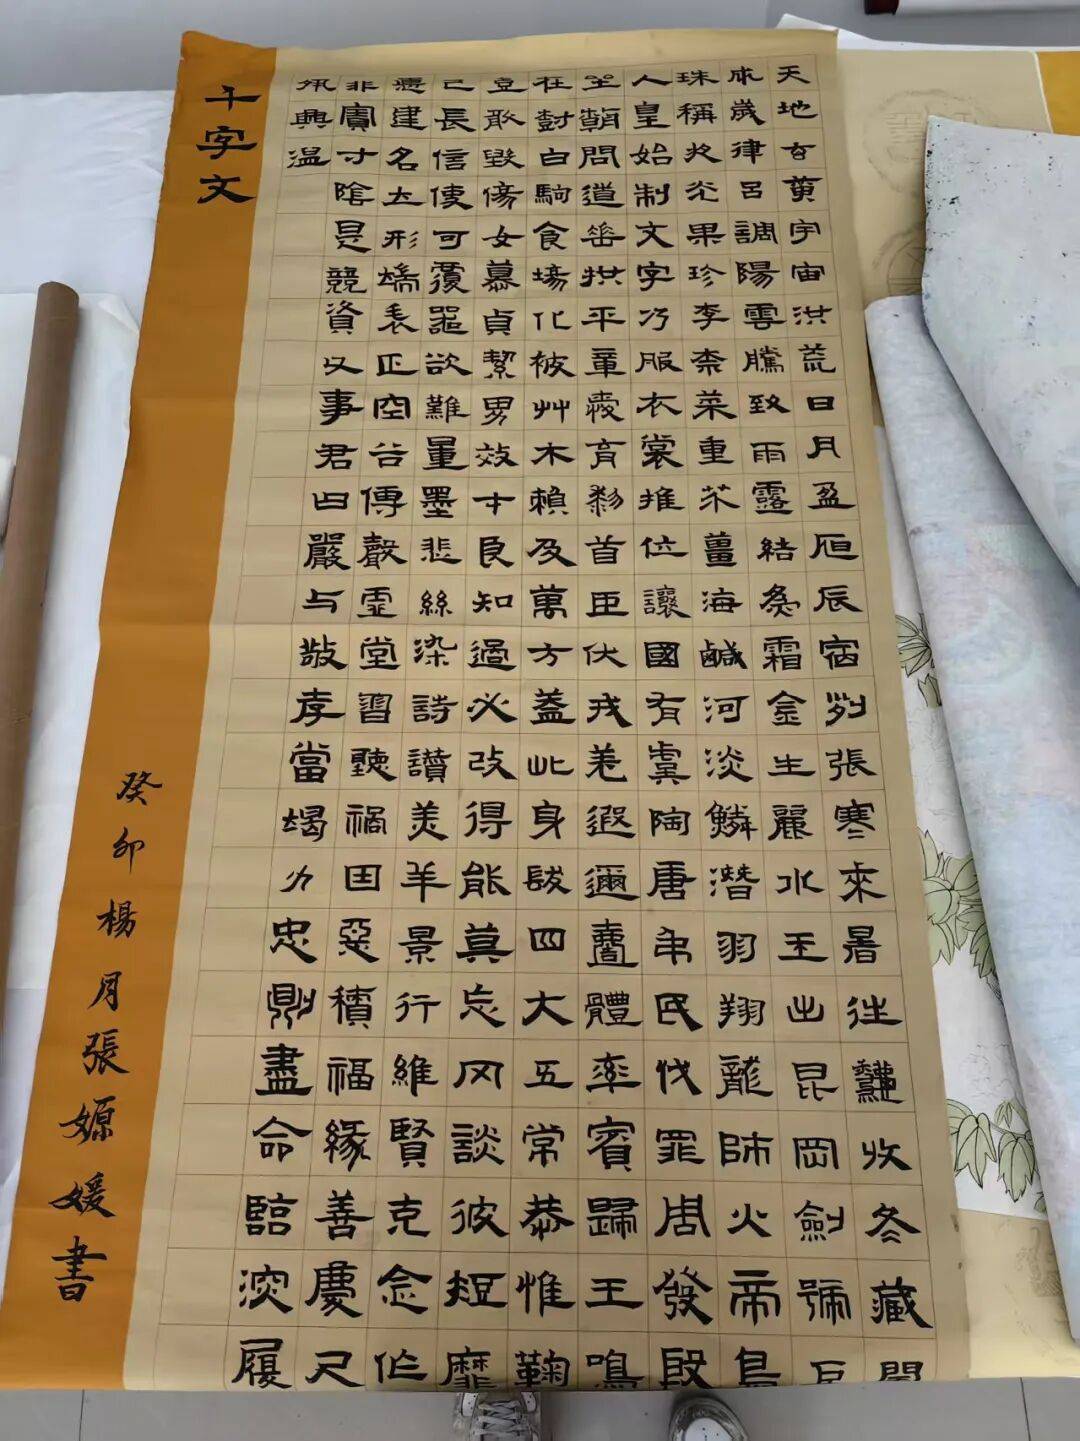 天地玄黃宇宙洪荒日月盈昃辰宿列張寒來暑往秋收冬藏閏
成歲律呂調陽雲騰致雨露結為霜金生麗水玉出昆岡劍號巨
珠稱夜光果珍李柰菜重芥薑海鹹河淡鱗潛羽翔龍師火帝鳥
人皇始制文字乃服衣裳推位讓國有虞陶唐弔民伐罪周發殷
坐朝問道垂拱平章愛育黎首臣伏戎羌遐邇壹體率賓歸王鳴
在樹白駒食場化被艸木賴及萬方蓋此身髮四大五常恭惟鞠
豈敢毀傷女慕貞絜男效才良知過必改得能莫忘罔談彼短靡
己長信使可覆器欲難量墨悲絲染詩讚羔羊景行維賢克念作
德建名立形端表正空谷傳聲虛堂習聽禍因惡積福緣善慶尺
非寶寸陰是競資父事君曰嚴与敬孝當竭力忠則盡命臨深履
夙興溫
千字文
癸卯楊月張嫄媛書